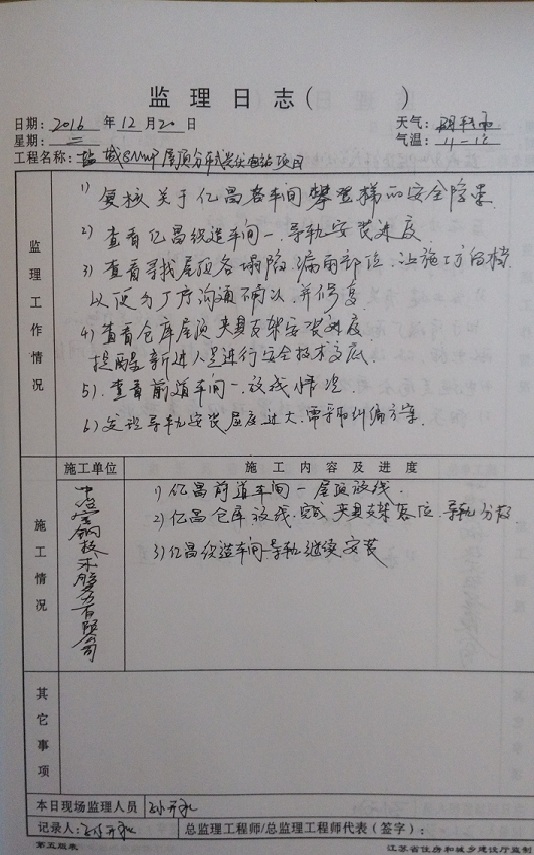 监理日志(          )
日期: 2016 年 12 月 20 日 天气:
星期: 二 气温: 11-12
工程名称: 盐城8MWP屋顶分布式光伏电站项目
监理工作情况
1) 复核关于亿昌各车间攀登梯的安全隐患
2) 查看亿昌织造车间一、导轨安装进度
3) 查看寻找屋顶各塌陷、漏雨部位,让施工方
以便与厂房沟通确认、并修复
4) 查看仓库屋顶夹具支架安装进度
提醒新进人员进行安全技术交底.
5) 查看前道车间一、放线情况
6) 发现导轨安装屈度过大,需采取纠偏方案.
施工单位 施工内容及进度
施工情况
技术股份有限公司
1) 亿昌前道车间一屋顶放线.
2) 亿昌仓库放线.完成夹具支架落位、导轨分散
3) 亿昌织造车间导轨继续安装
其它事项
本日现场监理人员
记录人: 总监理工程师/总监理工程师代表(签字):
第五版表 江苏省住房和城乡建设厅监制